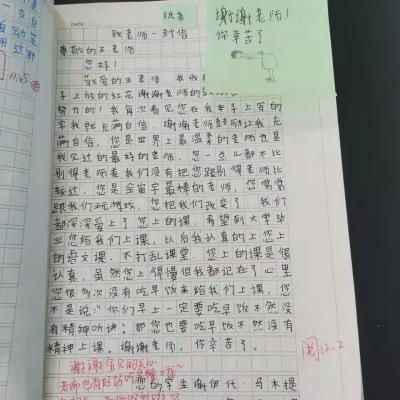 DATE:
致老师一封信
纸条
谢谢老师!
你辛苦了
尊敬的王老师
您好!
敬爱的王老师,我收
子上放的红花谢谢老师的
努力的!我每次看见您在我本子上写的
字我就充满自信。谢谢老师鼓励让我充
满自信。您是世界上最温柔的老师也是
我见过的最好的老师。您一点儿都不比
别得老师差我们没有把您跟别得老师比
较过,您是全宙宇最棒的老师,您常常
跟我们玩游戏,您把我们改变了,我们
都深深爱上了您上的课,希望到大学毕
业您给我们上课,以后我认真的上您上
的语文课,不打乱课堂,您上的课是很
认真,虽然您上得慢但我都记在了心里
您很多次没有吃早饭来给我们上课,您
不是说:你们早上一定要吃早饭不然没
有精神听讲。那您也要吃早饭不然没有
精神上课。谢谢老师,你辛苦了。
谢谢宝贝的关心
老师也有好好吃早餐哦~
您的学生谢伊代·马木提
阅12.2.
11.25